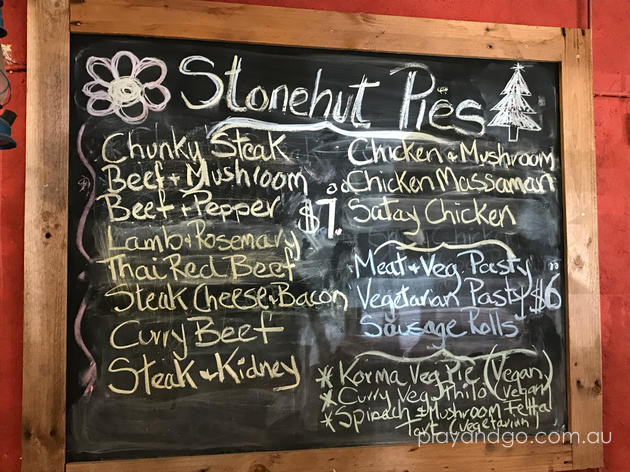 Stonehut Pies
Chunky Steak
Beef + Mushroom
Beef + Pepper
Lamb + Rosemary
Thai Red Beef
Steak Cheese + Bacon
Curry Beef
Steak + Kidney
$7.00
Chicken + Mushroom
Chicken Massaman
Satay Chicken
Meat + Veg. Pasty
Vegetarian Pasty
Sausage Rolls
$6.00
* Korma Veg Pie (Vegan)
* Curry Veg (Vegan)
* Spinach + Mushroom Fetta
Tart (Vegetarian)
playandgo.com.au